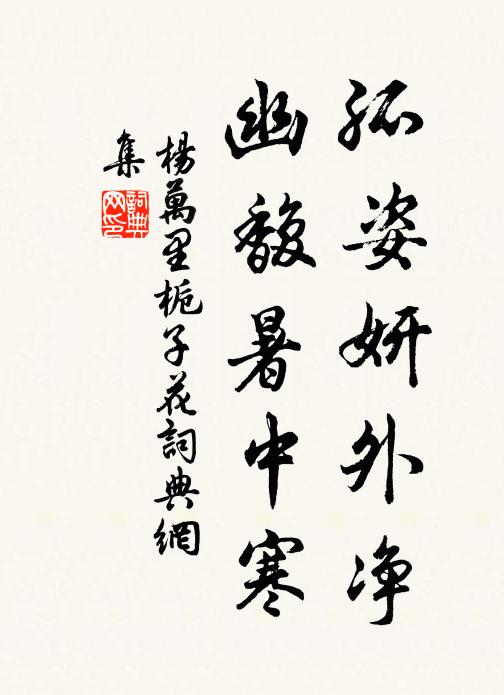 孤姿妍外净
幽馥暑中寒
楊萬里栀子花詞典網
集
詞典
网印